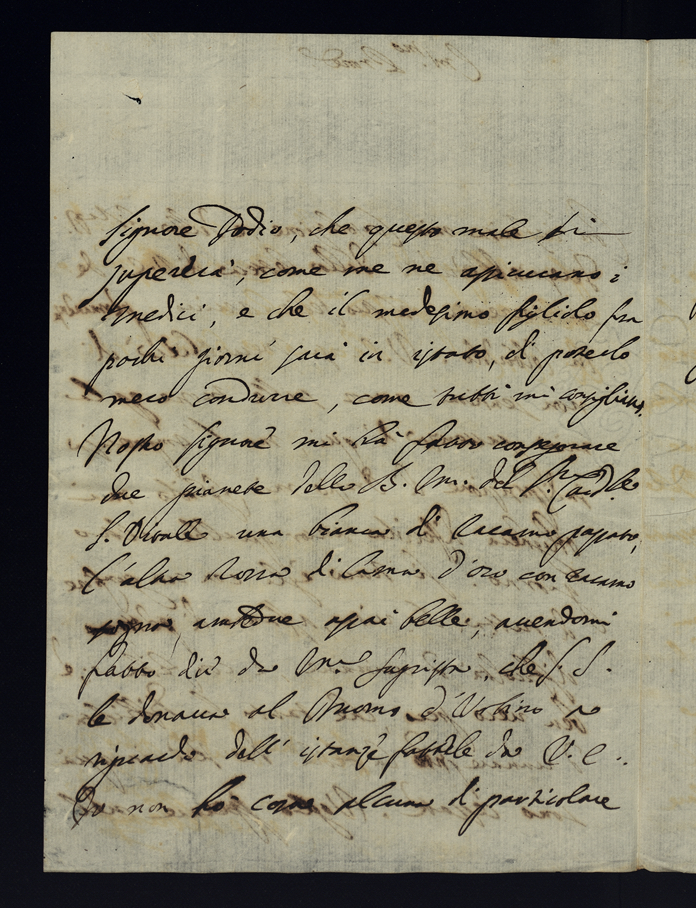 Signore Iddio, che questo male si
supererà, come me ne assicurano i
Medici, e che il medesimo figliolo fra
pochi giorni sarà in istato, di poterlo
meco condurre, come tutti mi consigliano.
Nostro Signore mi hà fatto consegnare
due pianete della B. M. del Sr. Cardle
S. Vitale una bianca di racamo
l'altra rossa di lama d'oro con racamo
amedue assai belle, avendomi
fatto dir da Mr. Sagrista, che S. S.
le donava al Duomo d'Urbino a
riguardo dell'istanze fattele da V. E.
Io non hò cosa alcuna di particolare